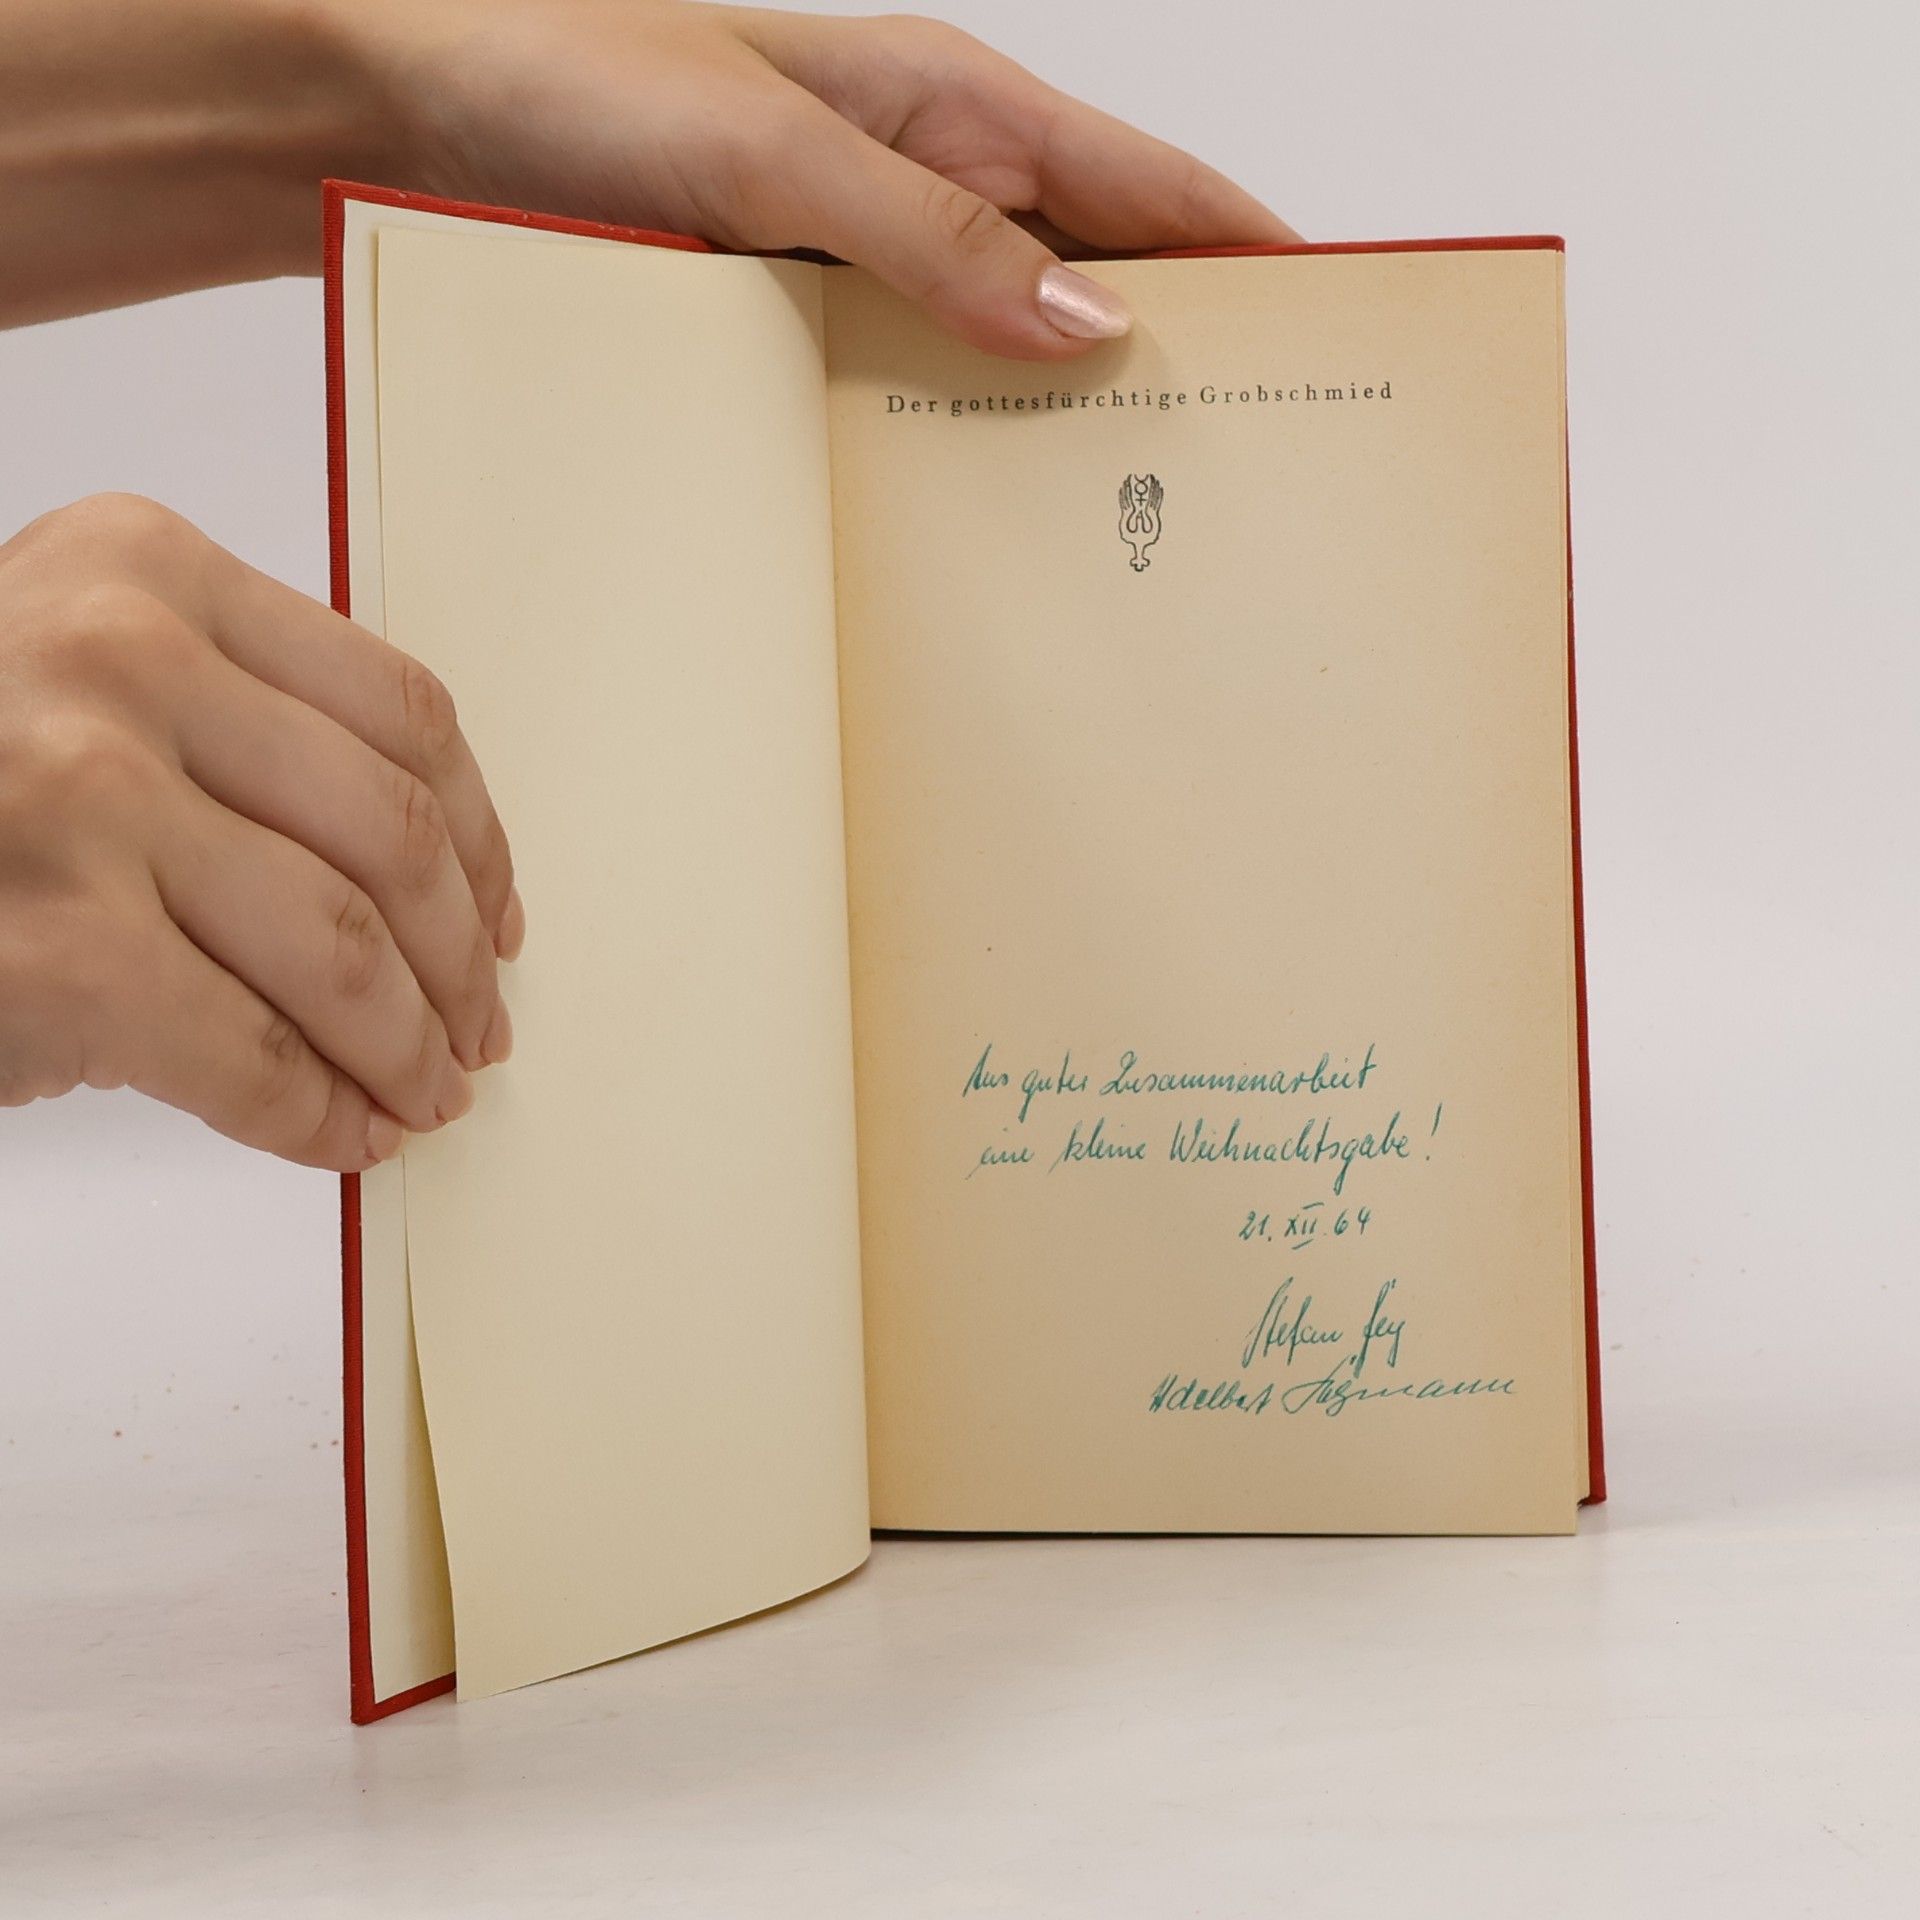 Der gottesfürchtige Grobschmied
Aus guter Zusammenarbeit
eine kleine Weihnachtsgabe!
21. XII. 64
Stefan Fey
Adelbert